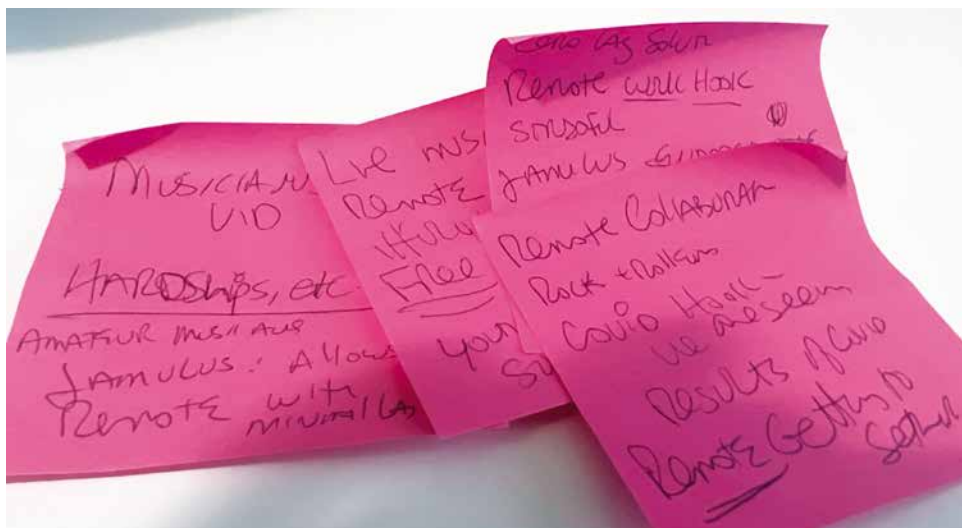 MUSICIAN
VID
HARDSHIPS, etc
AMATEUR MUSICIANS
JAMULUS: Allows
Remote with
minimal LAG
Live MUSI
Remote
Free
your
Zero LAG
Remote work Hook
JAMULUS
Remote Collaborat
Rock + Rollers
Covid Hook -
we are seein
Results of Covid
Remote Getting to
gether